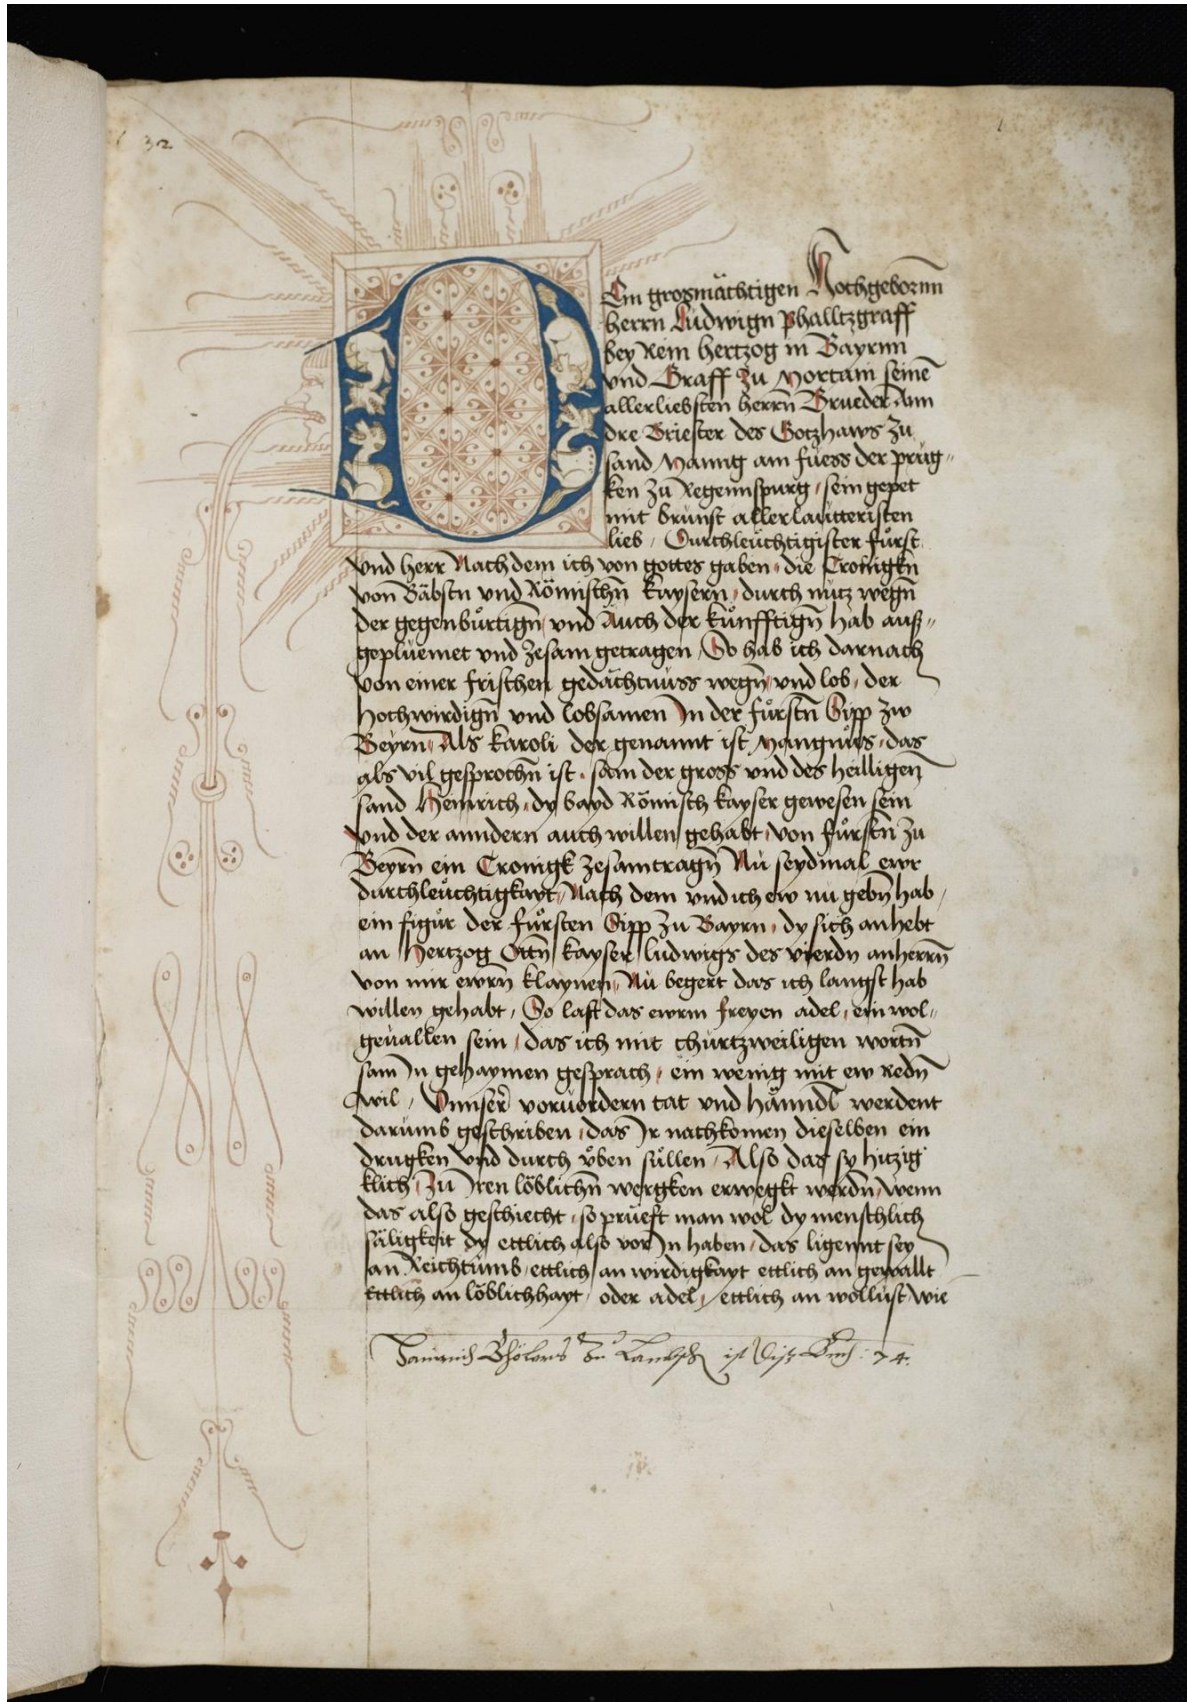 32
Dem grosmächtigen Hochgebornn
herrn Ludwign phalltzgraff
bey Rein hertzog in Bayrnn
vnd Graff zu mortam seinē
allerliebsten herrn Brueder Ann
dre Briester des Gotzhaws zu
sand Manng am fuess der prüg„
ken zu Regennspurg / sein gepet
mit brunst allerlautteristen
lieb / Durchleuchtigister fürst
vnd herr Nach dem ich von gottes gaben / die Cronigkn
von Bäbstn vnd Römischn kaysern / durch nutz wegn̄
der gegenbürtign̄ vnd Auch der künfftign̄ hab auß„
gepluemet vnd zesam getragen / So hab ich darnach
von einer frischen gedächtnüss wegn̄ vnd lob / der
hochwirdign̄ vnd lobsamen Jn der fürstn̄ Sipp zw
Beyrn / Als karoli der genannt ist mangnus / das
als vil gesprochn̄ ist / sam der gross vnd des heilligen̄
sand Heinrich / dy bayd Römisch kayser gewesen sein
vnd der anndern auch willen gehabt / von fürstn̄ zu
Beyrn̄ ein Cronigk zesamtragn̄ Nu seydmal ewr
durchleuchtigkayt / Nach dem vnd ich ew nu gebn̄ hab /
ein figur der fürsten Sipp zu Bayrn / dy sich anhebt
an hertzog Ottn̄ kayser ludwigs des vierdn anherrn̄
von mir ewrn̄ klaynen / Nu begert das ich langst hab
willen gehabt / So last das ewrm freyen adel / ein wol„
geuallen sein / das ich mit churtzweiligen wortn̄
sam Jn gehaymen gesprach / ein wenig mit ew Redn̄
wil / Vnnser̄ voruordern tat vnd hänndl werdent
darumb geschriben / das Jr nachkomen dieselben ein
drugken vnd durch üben süllen / Also das sy hitzig
klich / zu Jren löblichn̄ wergken erwegkt werdn̄ / wenn
das also geschiecht / so prüeft man wol dy menschlich
säligkeit dy ettlich also vor Jn haben / das ligennt sey
an Reichtumb / ettlich an wirdigkayt ettlich an gewallt
ettlich an löblichhayt / oder adel / ettlich an wollust wie
ist diss Buch : 74.